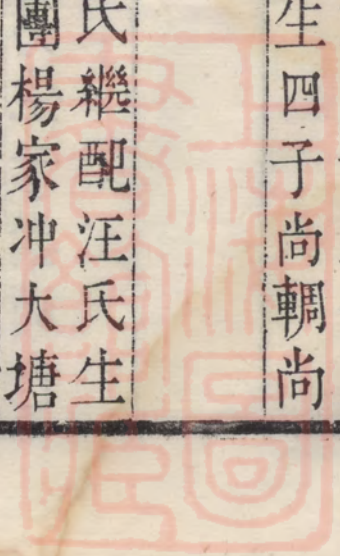 生四子尚輖尚
氏繼配汪氏生
團楊家冲大塘